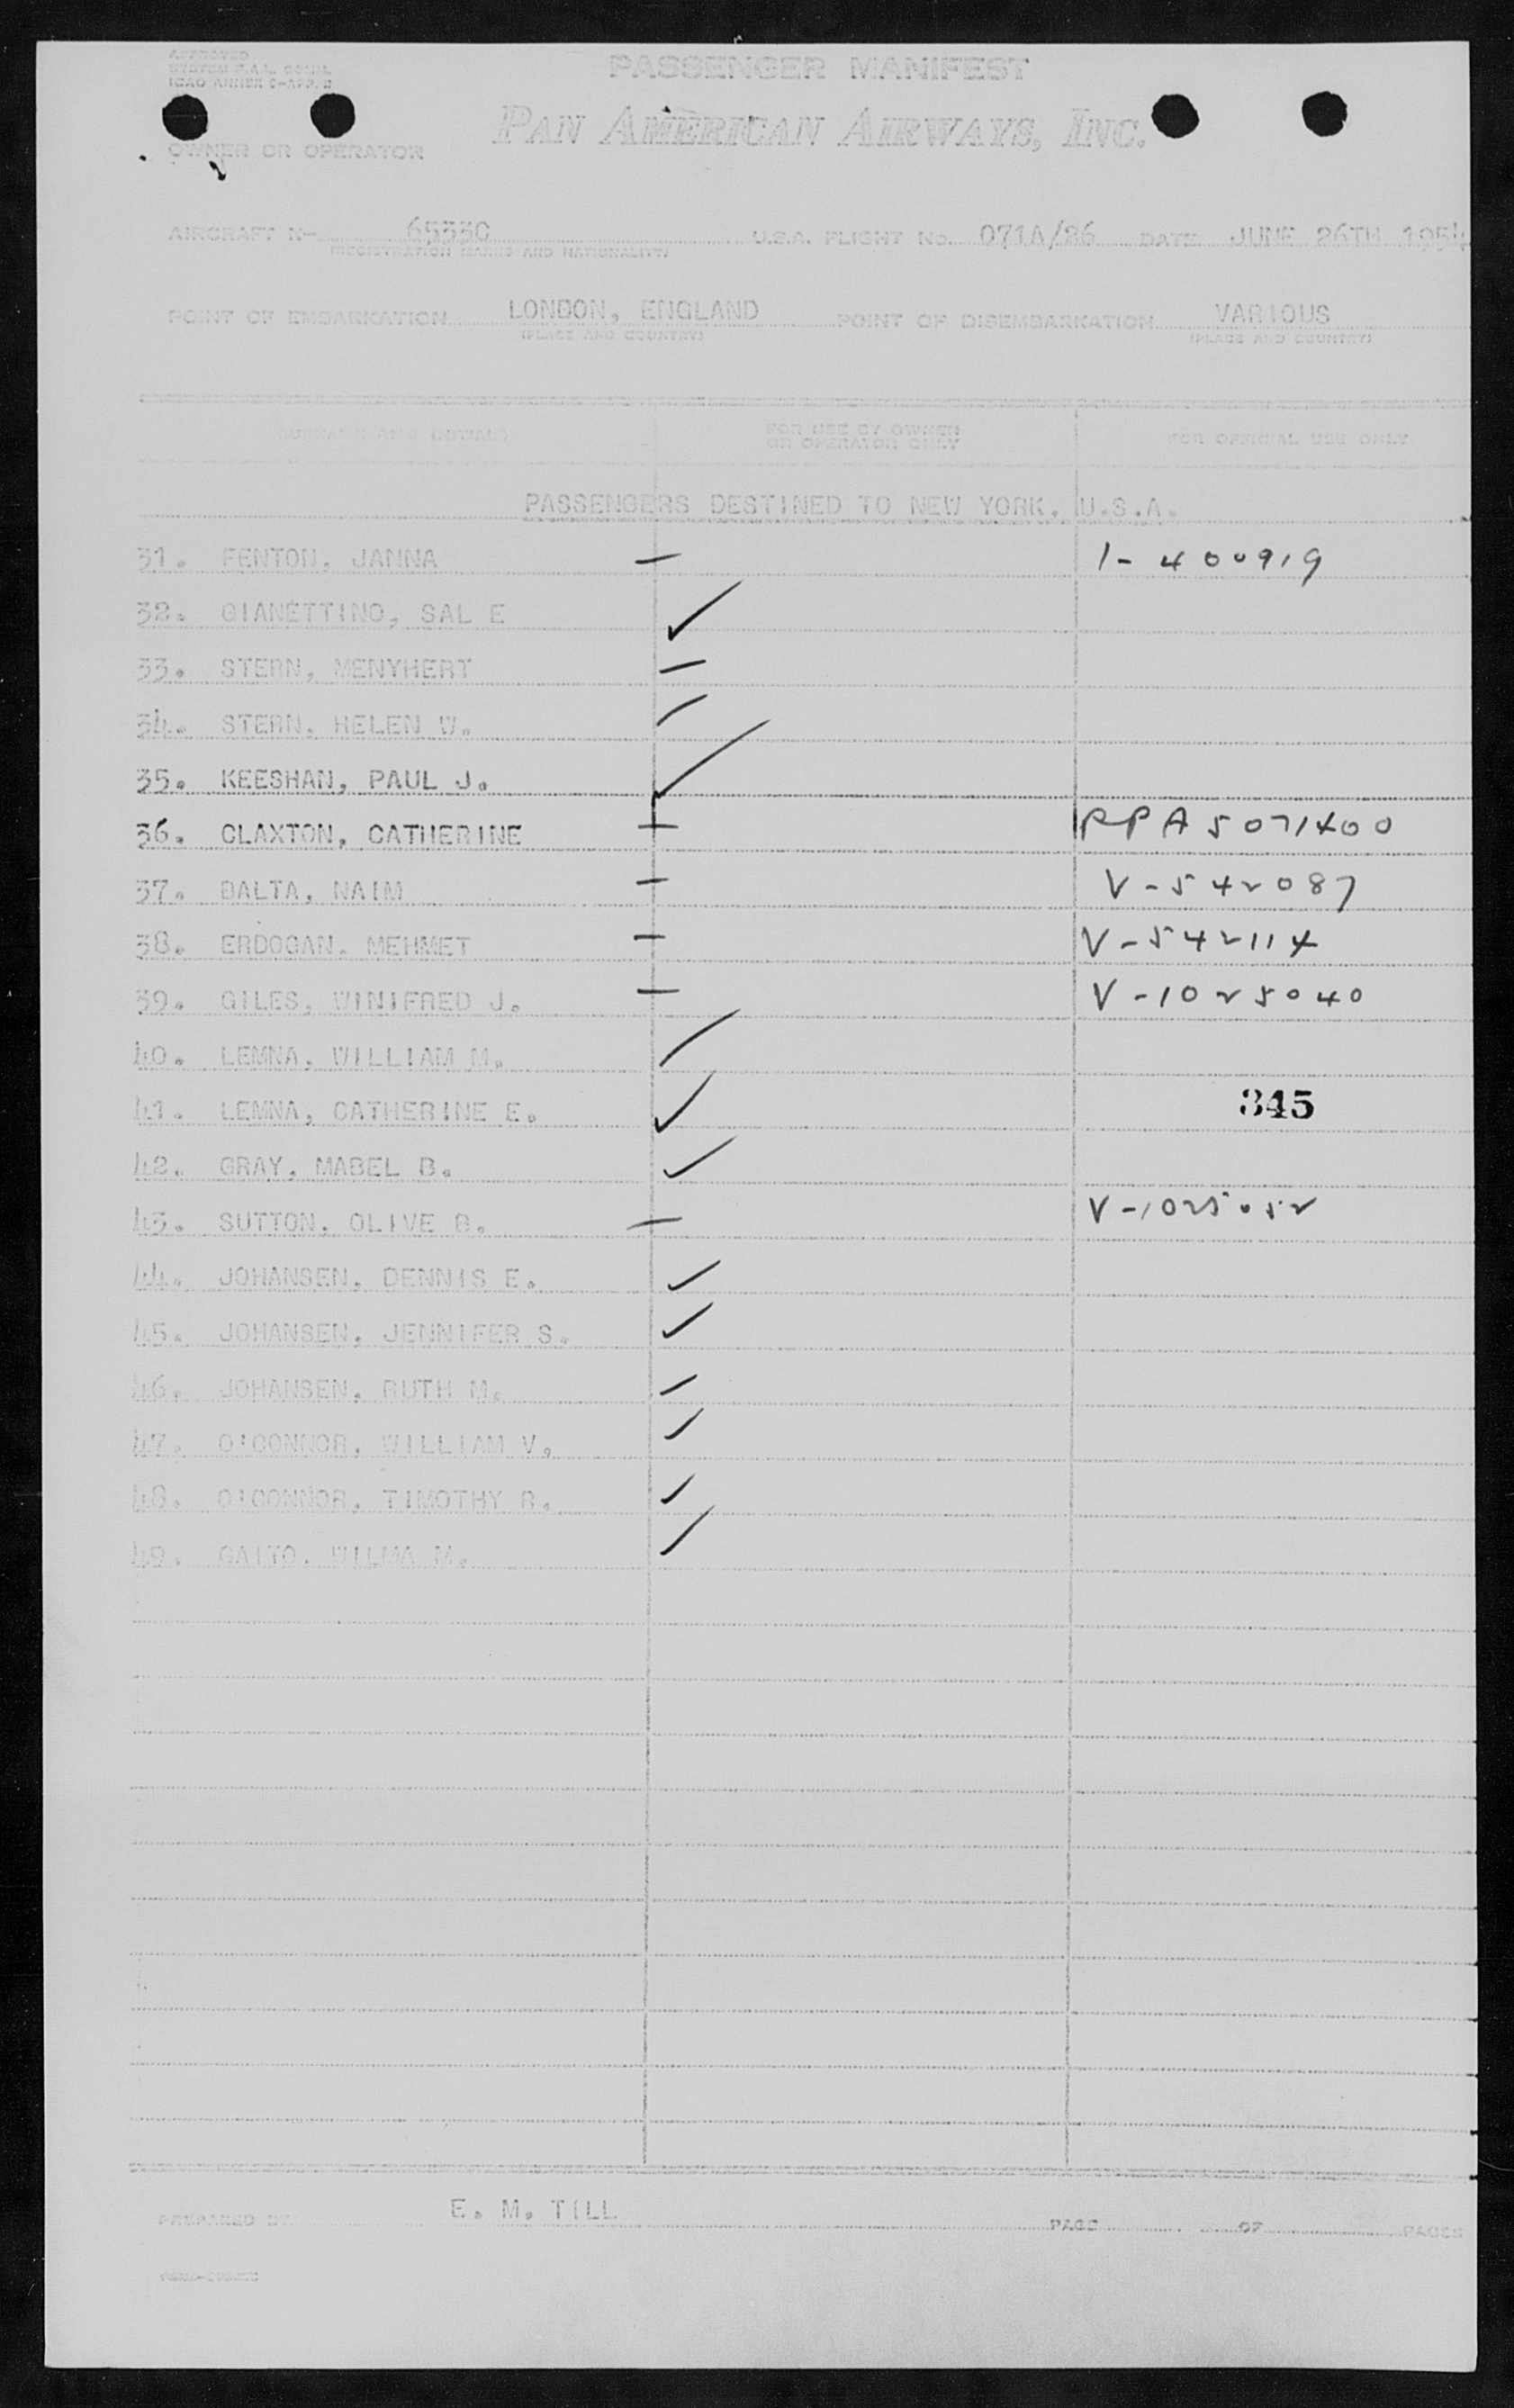 APPROVED
PASSENGER MANIFEST
PAN AMERICAN AIRWAYS, INC.
OWNER OR OPERATOR
AIRCRAFT N- 6533C U.S.A. FLIGHT NO. 071A/26 DATE JUNE 26TH 1954
(REGISTRATION MARKS AND NATIONALITY)
POINT OF EMBARKATION LONDON, ENGLAND POINT OF DISEMBARKATION VARIOUS
(PLACE AND COUNTRY) (PLACE AND COUNTRY)
FOR USE BY OWNER
OR OPERATOR ONLY
FOR OFFICIAL USE ONLY
PASSENGERS DESTINED TO NEW YORK, U.S.A.
31. FENTON, JANNA — 1-400919
32. GIANETTINO, SAL E ✓
33. STERN, MENYHERT —
34. STERN, HELEN W.
35. KEESHAN, PAUL J. ✓
36. CLAXTON, CATHERINE — PPA 5071400
37. BALTA, NAIM — V-542087
38. ERDOGAN, MEHMET — V-542114
39. GILES, WINIFRED J. — V-1025040
40. LEMNA, WILLIAM M.
41. LEMNA, CATHERINE E. ✓ 345
42. GRAY, MABEL B. ✓
43. SUTTON, OLIVE B. — V-1025052
44. JOHANSEN, DENNIS E. ✓
45. JOHANSEN, JENNIFER S. ✓
46. JOHANSEN, RUTH M.
47. O'CONNOR, WILLIAM V. ✓
48. O'CONNOR, TIMOTHY R. ✓
49. GAITO, WILMA M.
PREPARED BY E. M. TILL PAGE OF PAGES